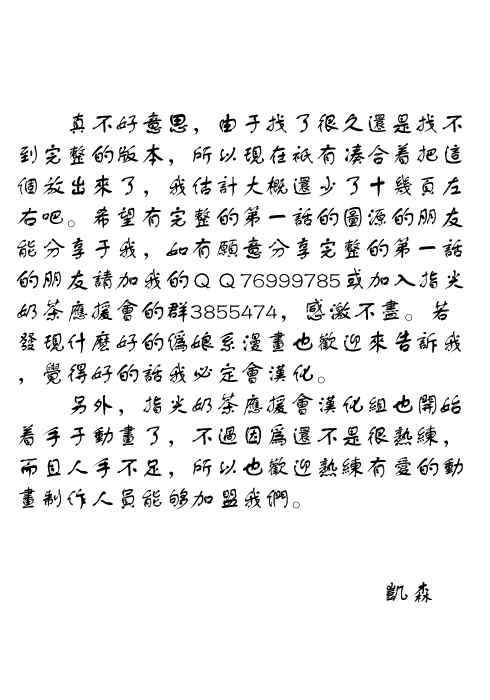 真不好意思，由于找了很久還是找不
到完整的版本，所以現在衹有凑合着把這
個放出來了，我估計大概還少了十幾頁左
右吧。希望有完整的第一話的圖源的朋友
能分享于我，如有願意分享完整的第一話
的朋友請加我的QQ76999785或加入指尖
奶茶應援會的群3855474，感激不盡。若
發現什麽好的僞娘系漫畫也歡迎來告訴我
，覺得好的話我必定會漢化。
另外，指尖奶茶應援會漢化組也開始
着手于動畫了，不過因爲還不是很熟練，
而且人手不足，所以也歡迎熟練有愛的動
畫制作人員能够加盟我們。
凱森